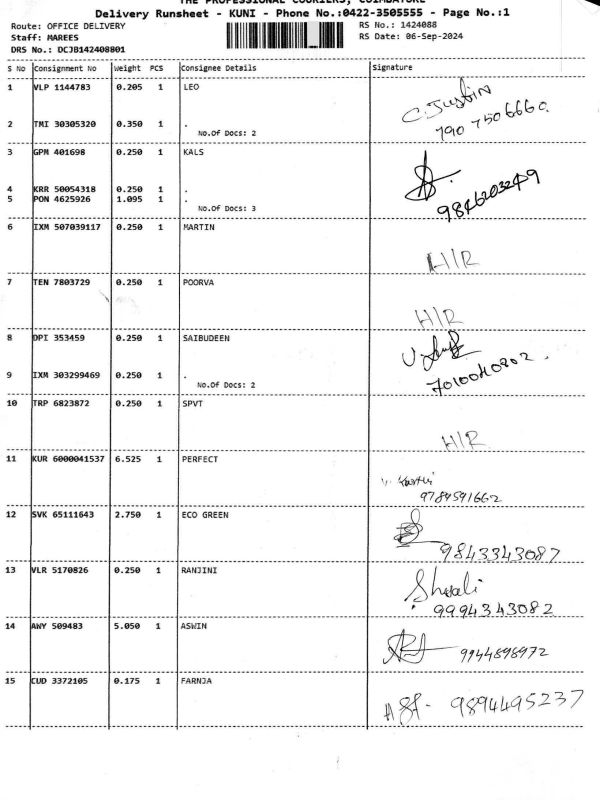 THE PROFESSIONAL COURIERS, COIMBATORE
Delivery Runsheet - KUNI - Phone No.:0422-3505555 - Page No.:1
Route: OFFICE DELIVERY RS No.: 1424088
Staff: MAREES RS Date: 06-Sep-2024
DRS No.: DCJB142408801
S No Consignment No Weight PCS Consignee Details Signature
1 VLP 1144783 0.205 1 LEO
C. Justin
790 7506660
2 TMI 30305320 0.350 1 .
No.Of Docs: 2
3 GPM 401698 0.250 1 KALS
4 KRR 50054318 0.250 1 .
5 PON 4625926 1.095 1 .
9846203249
No.Of Docs: 3
6 IXM 507039117 0.250 1 MARTIN
H/R
7 TEN 7803729 0.250 1 POORVA
H/R
8 DPI 353459 0.250 1 SAIBUDEEN
9 IXM 303299469 0.250 1 .
No.Of Docs: 2
10 TRP 6823872 0.250 1 SPVT
H/R
11 KUR 6000041537 6.525 1 PERFECT
9784591662
12 SVK 65111643 2.750 1 ECO GREEN
9843343087
13 VLR 5170826 0.250 1 RANJINI
9994343082
14 AWY 509483 5.050 1 ASWIN
9944898972
15 CUD 3372105 0.175 1 FARNJA
9894495237